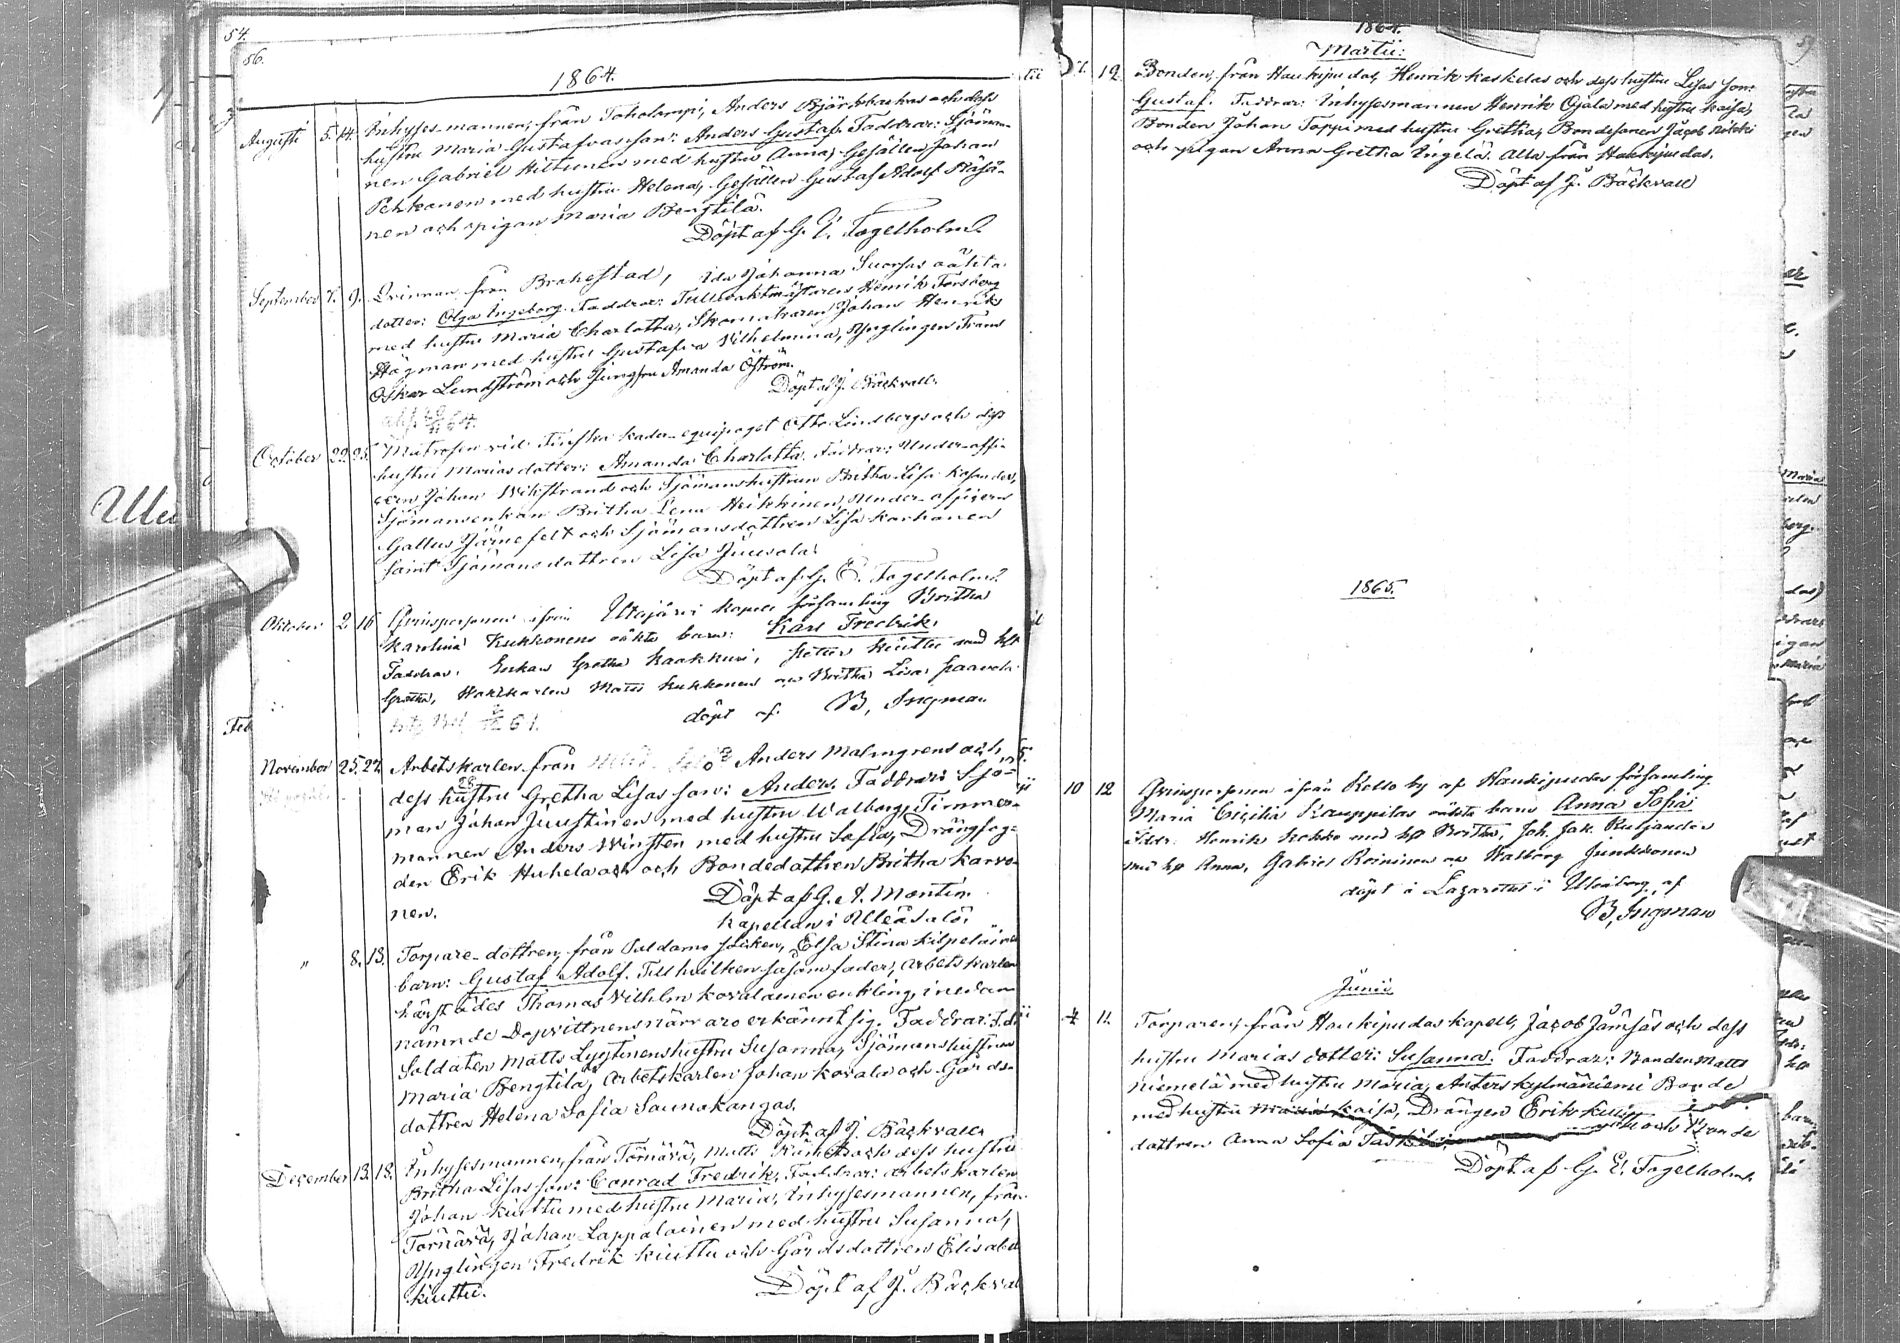 54.
56.
1864.
Augusti 5. 14. Inhyses-mannen, från Toholampi, Anders Björkbackas och dess
hustru Maria Gustafvas son: Anders Gustaf. Faddrar: Sjöman-
nen Gabriel Hiltunen med hustru Anna, Gesällen Johan
Pehkonen med hustru Helena, Gesällen Gustaf Adolf Räsä-
nen och pigan Maria Bengtilä.
Döpt af G. E. Fogelholm.
September 7. 9. Qvinnan, från Brahestad, Ida Johanna oäkta
dotter: Olga Ingeborg. Faddrar: Tullvaktmästaren Henrik Forsberg
med hustru Maria Charlotta, Skomakaren Johan Henrik
Högman med hustru Gustafva Vilhelmina, Ynglingen Frans
Oskar Lundström och Jungfru Amanda Öström.
Döpt af J. Bäckvall.
64.
October 22. 25. Matrosen vid Finska kader-equipaget Otto Lindbergs och dess
hustru Marias dotter: Amanda Charlotta. Faddrar: Under-offi-
cern Johan Wikstrand och Sjömanshustrun Britha Lisa
Sjömansenkan Britha Lena Heikkinen, Under-officern
Gallus Järnefelt och Sjömansdottren Lisa Karhonen
samt Sjömansdottren Lisa Juusola.
Döpt af G. E. Fogelholm.
Oktober 2. 16. Qvinspersonen ifrån Utajärvi kapell församling Britha
Karolina Kukkonens oäkta barn: Karl Fredrik.
Faddrar: Enkan Gretha Kaakkuri, Petter Kiuttu med hst
Gretha, Matts Kukkonen och Britha Lisa Paavola
61. döpt af B. Ingman
Feb
November 25. 27. Arbetskarlen från Anders Malmgrens och
dess hustru Gretha Lisas son: Anders. Faddrar: Sjö-
man Johan Juustinen med hustru Walborg, Timmer-
mannen Anders Winsten med hustru Sofia, Dräng
den Erik Huhela och Bondedottren Britha Karvo-
nen.
Döpt af G. A. Montin
Kapellan i Uleåsalo.
" 8. 13. Torpare-dottren, från Paldamo Socken, Elsa Stina Kilpeläinens
barn: Gustaf Adolf. Till hvilken såsom fader, arbetskarlen
härstädes Thomas Vilhelm Kovalainen enkling, i nedan
nämnde Dopvittnens närvaro erkännt sig. Faddrar:
Soldaten Matts Lyytinens hustru Susanna, Sjömanshustrun
Maria Bengtilä, Arbetskarlen Johan Kovala och Gårds-
dottren Helena Sofia Saunakangas.
Döpt af J. Bäckvall
December 13. 18. Inhysesmannen, från Törnävä, Matts och dess hustru
Britha Lisas son: Conrad Fredrik. Faddrar: arbetskarlen
Johan Kiuttu med hustru Maria, Inhysesmannen, från
Törnävä, Johan Lappalainen med hustru Susanna,
Ynglingen Fredrik Kiuttu och Gårdsdottren Elisabet
Kiuttu.
Döpt af J. Bäckval
Uleå
1864.
Martii:
7. 12. Bonden, från Haukipudas, Henrik Kaskelas och dess hustru Lisas son:
Gustaf. Faddrar: Inhysesmannen Henrik Ojala med hustru Kaisa,
Bonden Johan Toppi med hustru Gretha, Bondesonen Jacob
och pigan Anna Gretha Ingelä. Alla från Haukipudas.
Döpt af J. Bäckvall
1865.
10 12 Qvinspersonen ifrån Kello by af Haukipudas församling
Maria Cecilia Kauppilas oäkta barn Anna Sofia
Faddr: Henrik Kokko med hst Britha, Joh. Jak.
med hst Anna, Gabriel Roininen och Walborg Junttonen
döpt å Lazarettet i Uleåborg, af
B. Ingman
Junii
4 11. Torparen, från Haukipudas kapell, Jacob Jämsäs och dess
hustru Marias dotter: Susanna. Faddrar: Bonden Matts
Niemelä med hustru Maria, Anders Kylmäniemi Bonde
med hustru Maria Kaisa, Drängen Erik och Bonde
dottren Anna Sofia
Döpt af G. E. Fogelholm.